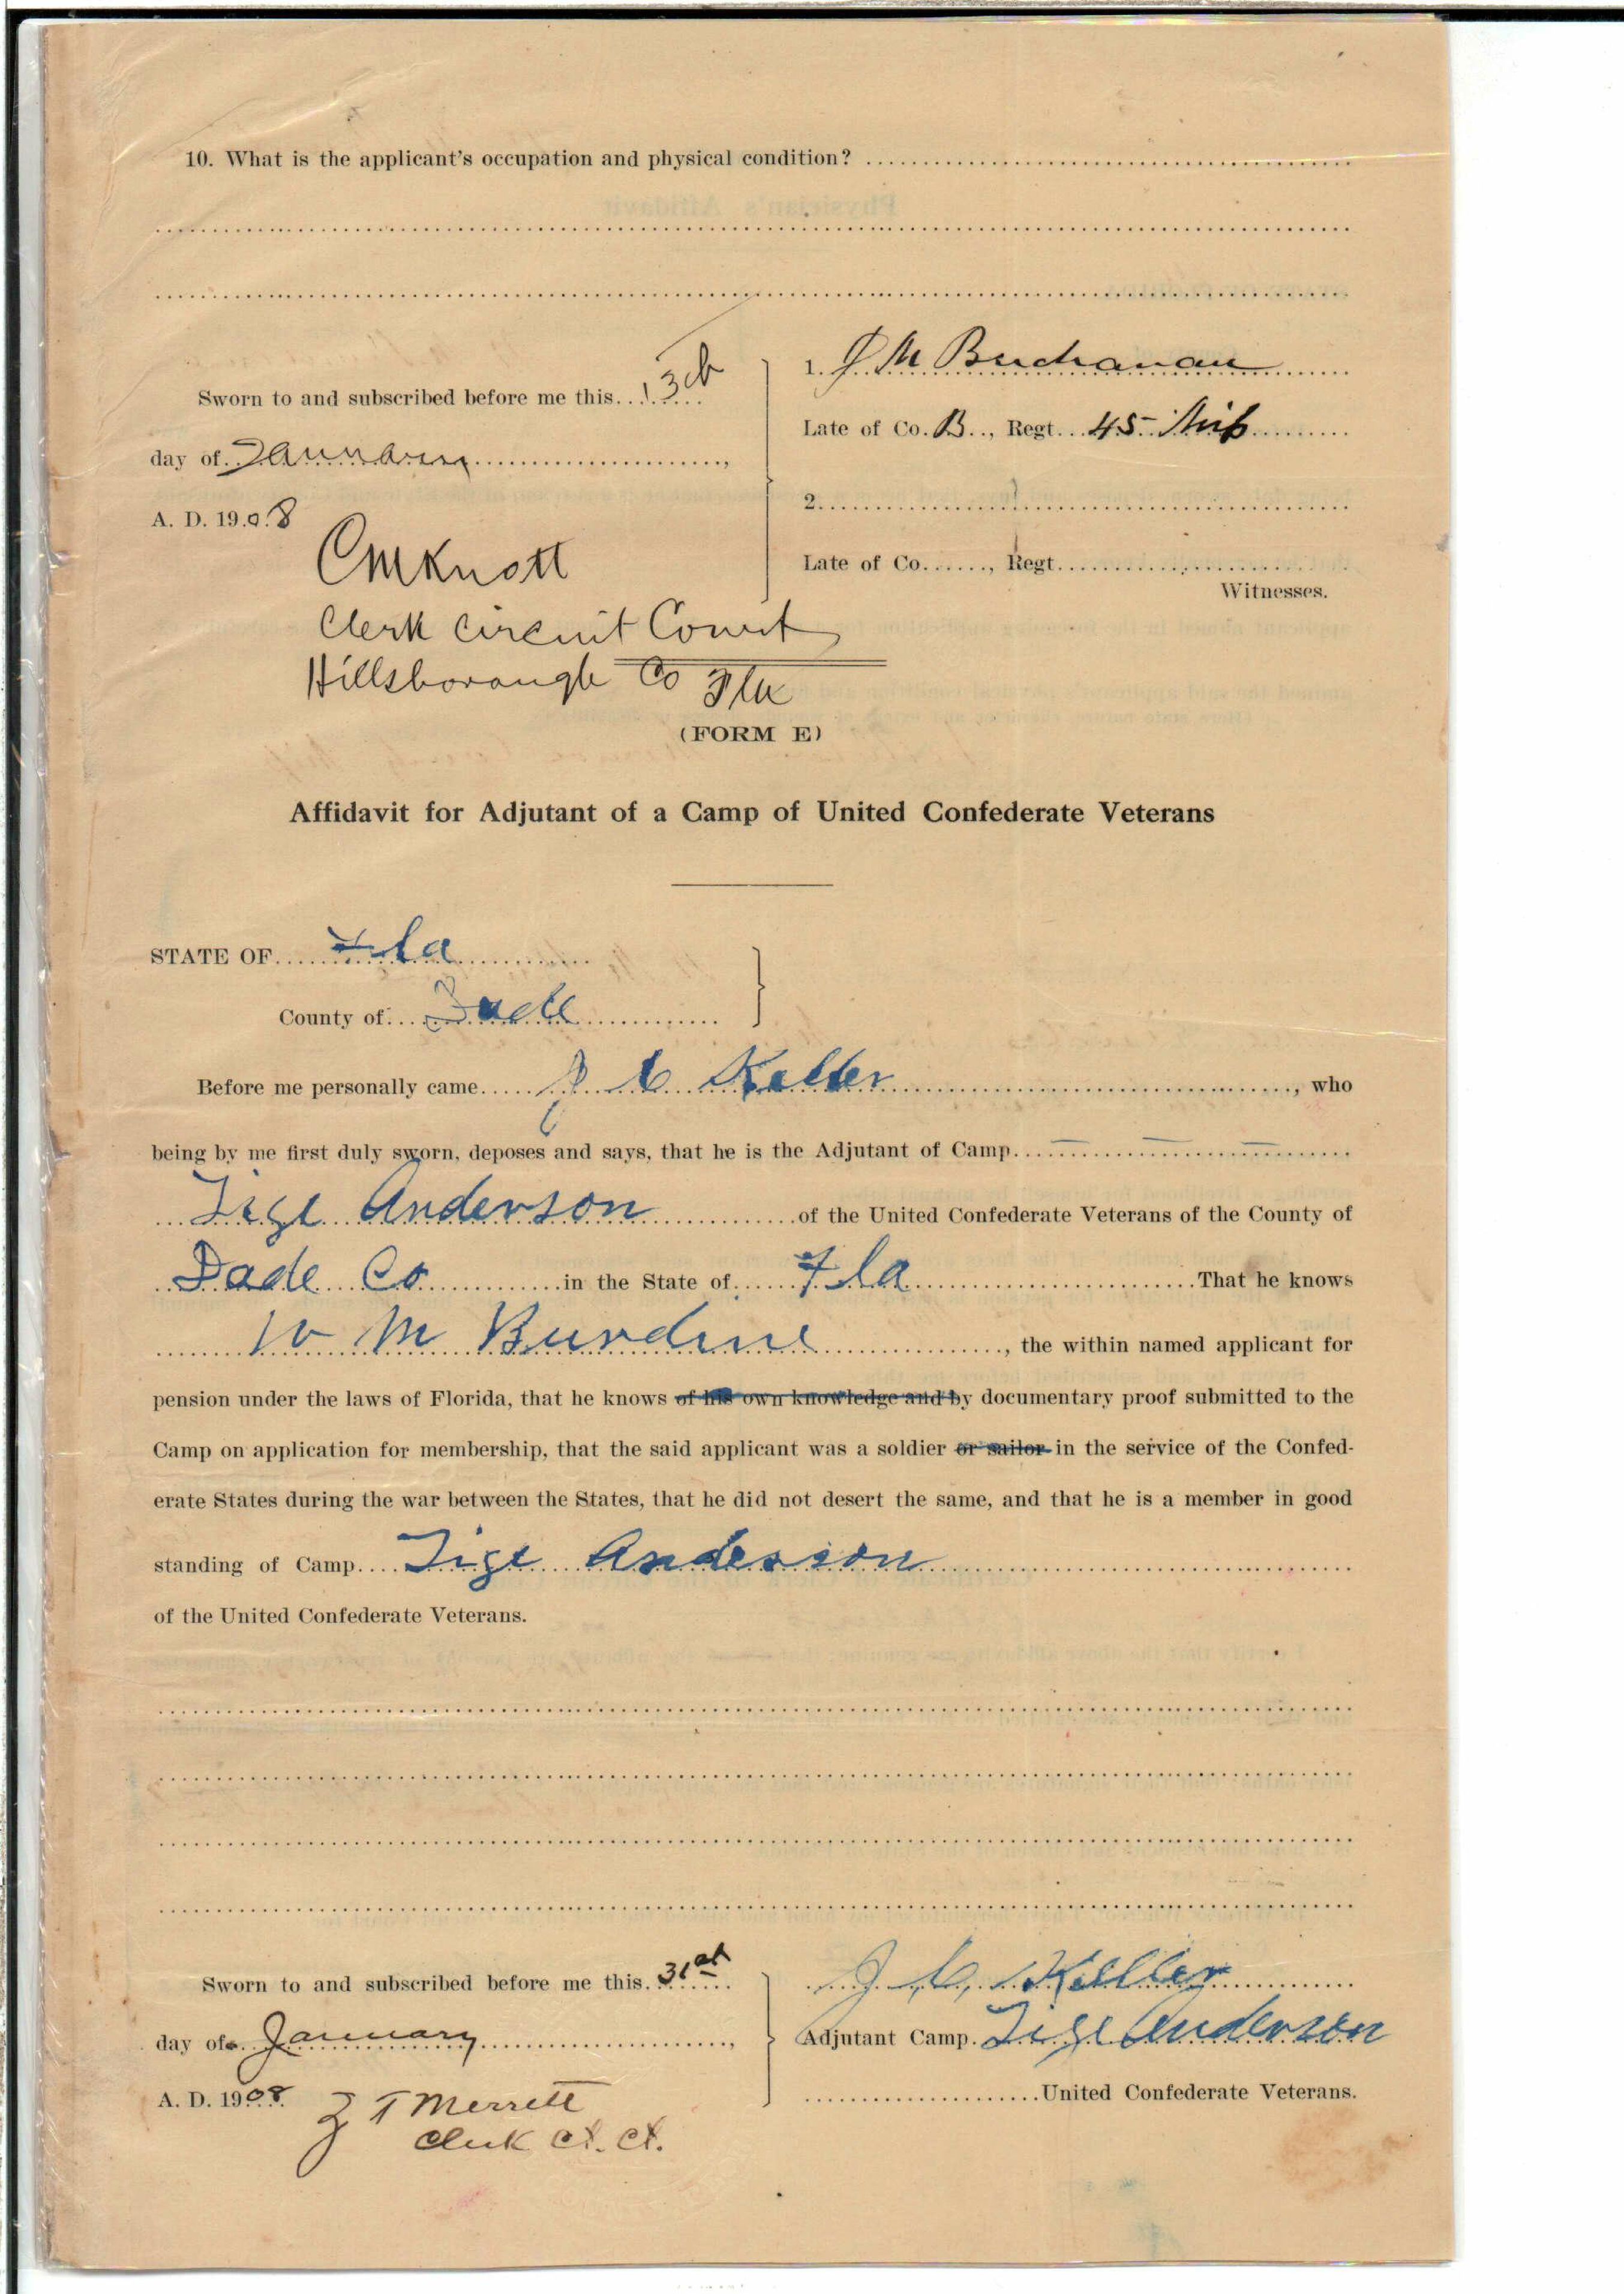 10. What is the applicant's occupation and physical condition?
Sworn to and subscribed before me this 13th
day of January,
A. D. 1908
C M Knott
Clerk Circuit Court
Hillsborough Co Fla
1. J M Buchanan
Late of Co. B, Regt. 45 Miss
2.
Late of Co. , Regt.
Witnesses.
(FORM E)
Affidavit for Adjutant of a Camp of United Confederate Veterans
STATE OF Fla
County of Dade
Before me personally came J C Keller, who
being by me first duly sworn, deposes and says, that he is the Adjutant of Camp
Tige Anderson of the United Confederate Veterans of the County of
Dade Co in the State of Fla That he knows
W M Burdine, the within named applicant for
pension under the laws of Florida, that he knows of his own knowledge and by documentary proof submitted to the
Camp on application for membership, that the said applicant was a soldier or sailor in the service of the Confed-
erate States during the war between the States, that he did not desert the same, and that he is a member in good
standing of Camp Tige Anderson
of the United Confederate Veterans.
Sworn to and subscribed before me this 31st
day of January,
A. D. 1908
Z T Merrett
Clerk Ct. Ct.
J. C. Keller
Adjutant Camp Tige Anderson
United Confederate Veterans.